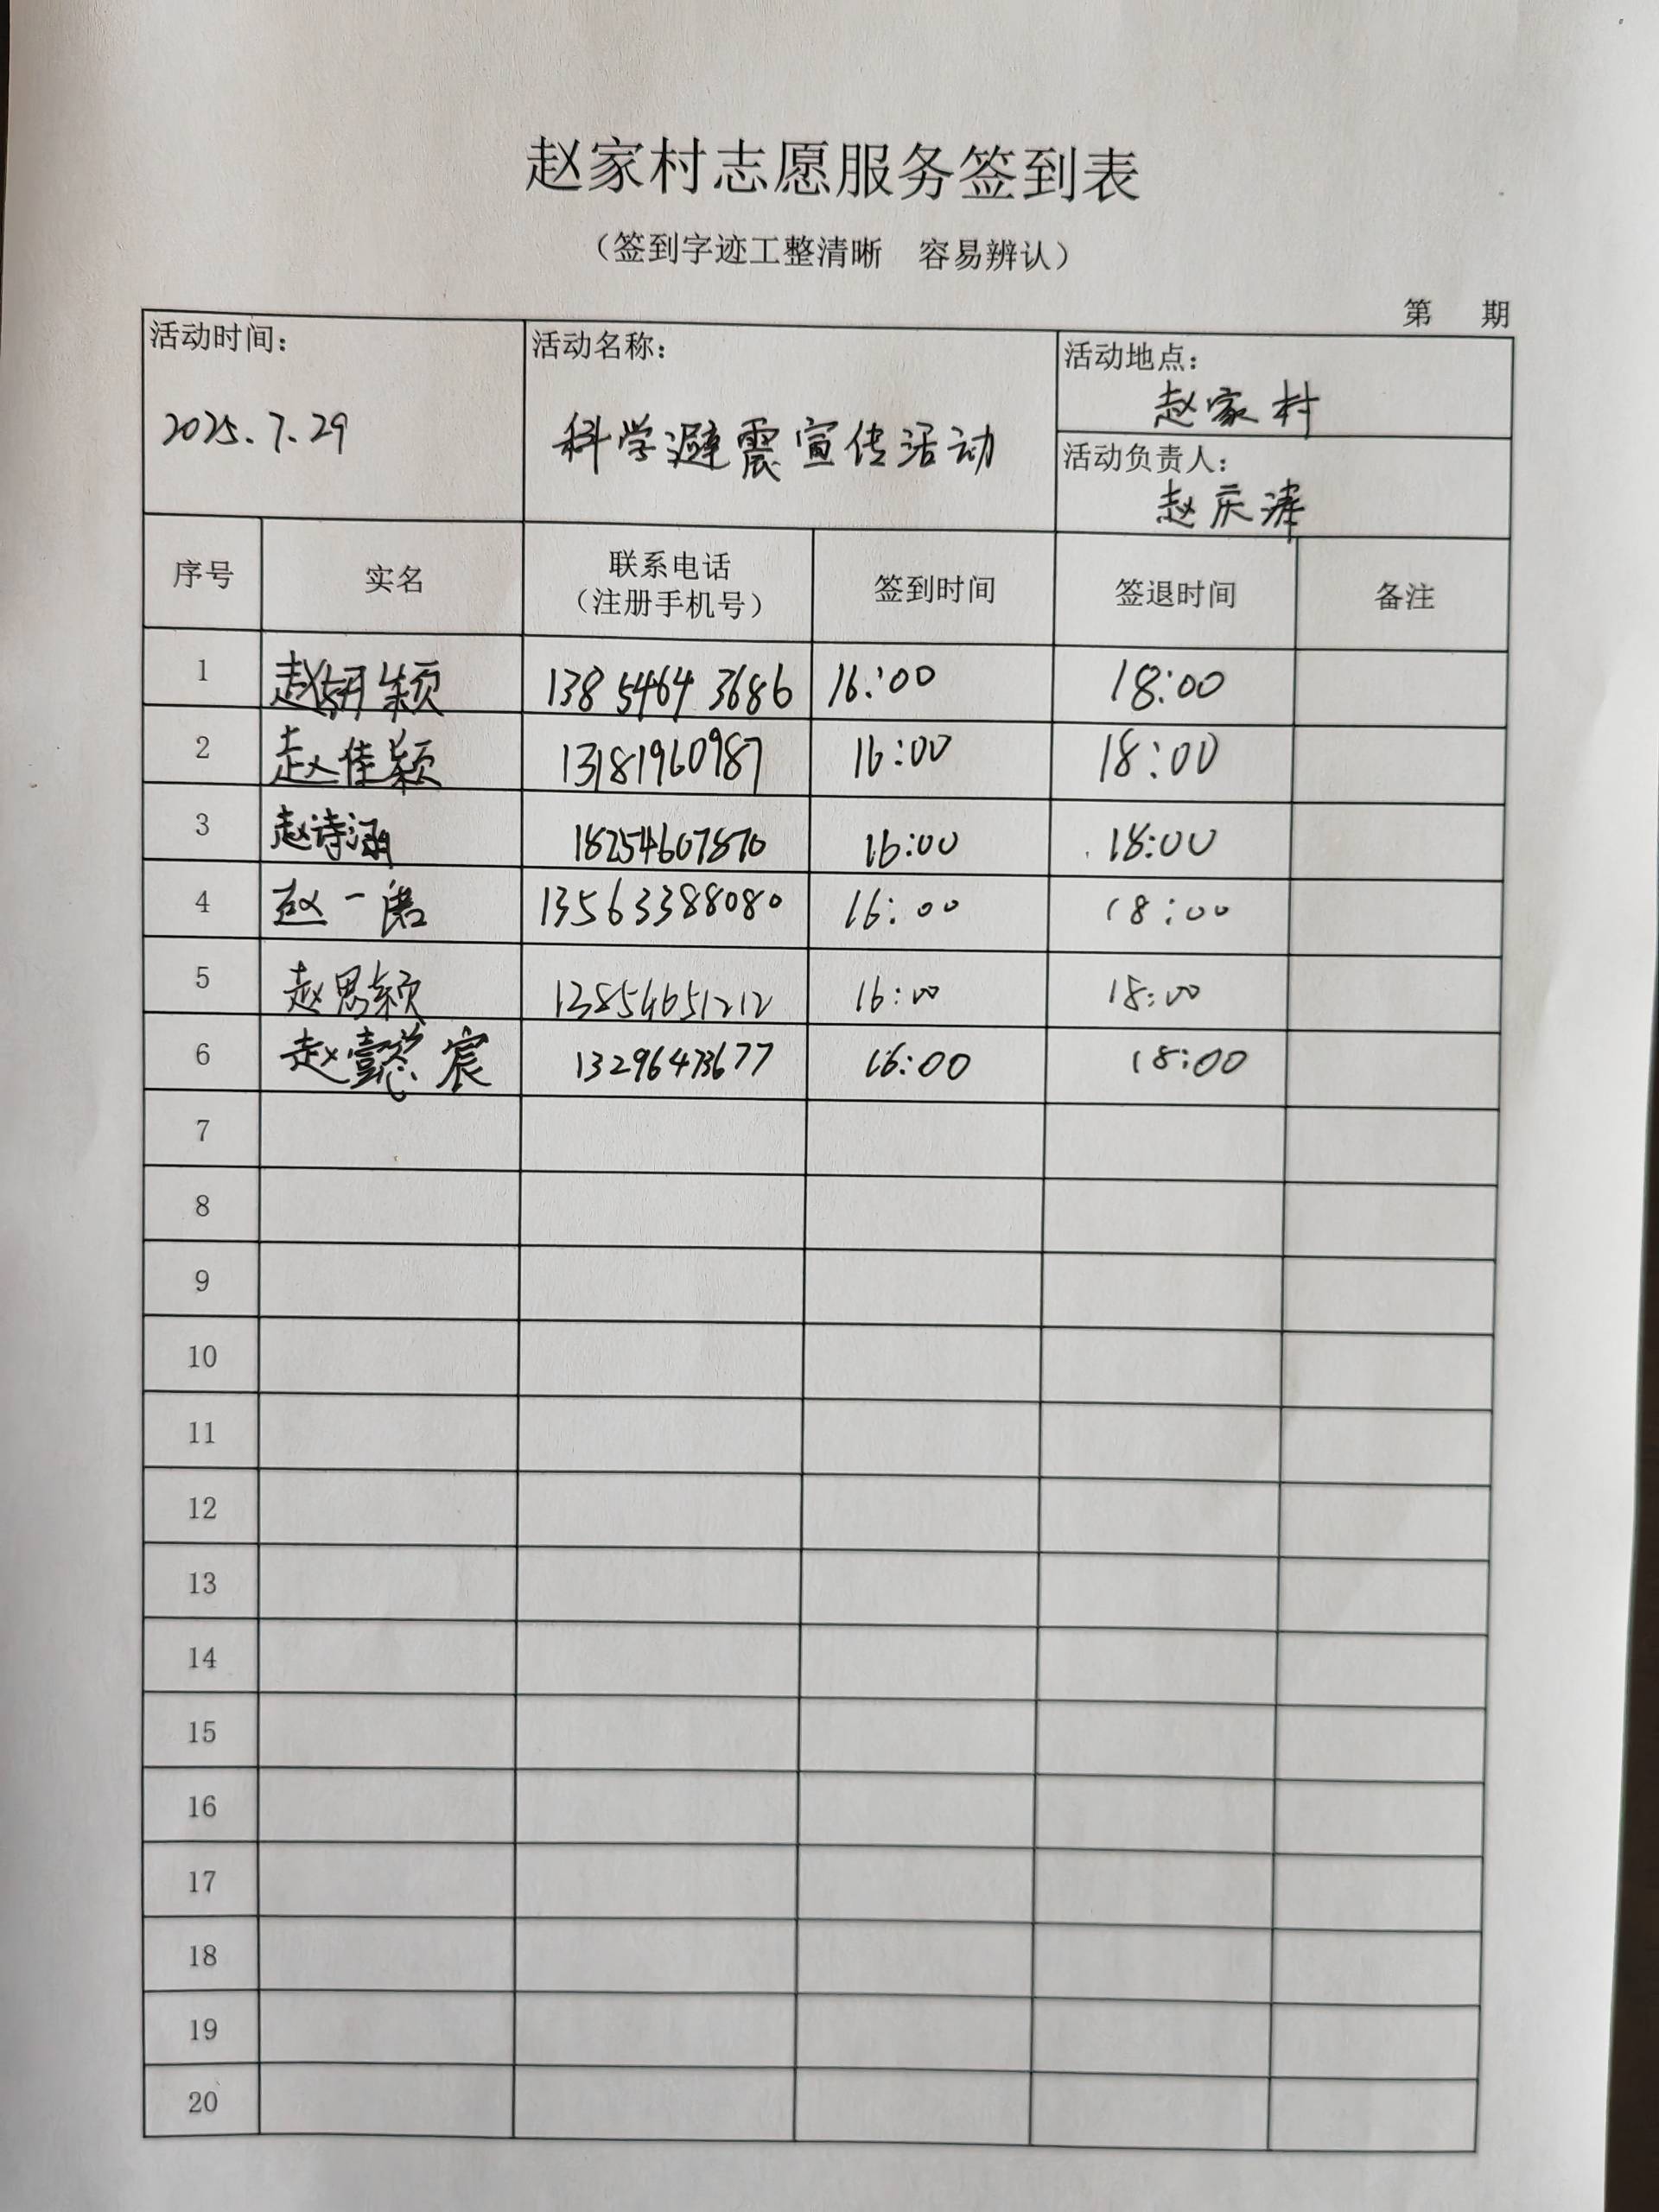 赵家村志愿服务签到表
（签到字迹工整清晰　容易辨认）
第　期
活动时间： 活动名称： 活动地点：
2025.7.29 科学避震宣传活动 赵家村
活动负责人：
赵庆涛
序号 实名 联系电话（注册手机号） 签到时间 签退时间 备注
1 赵妍颖 138 5464 3686 16:00 18:00
2 赵佳颖 13181960987 16:00 18:00
3 赵诗涵 18254607870 16:00 18:00
4 赵一诺 13563388080 16:00 18:00
5 赵思颖 13854651212 16:00 18:00
6 赵懿宸 13296473677 16:00 18:00
7
8
9
10
11
12
13
14
15
16
17
18
19
20